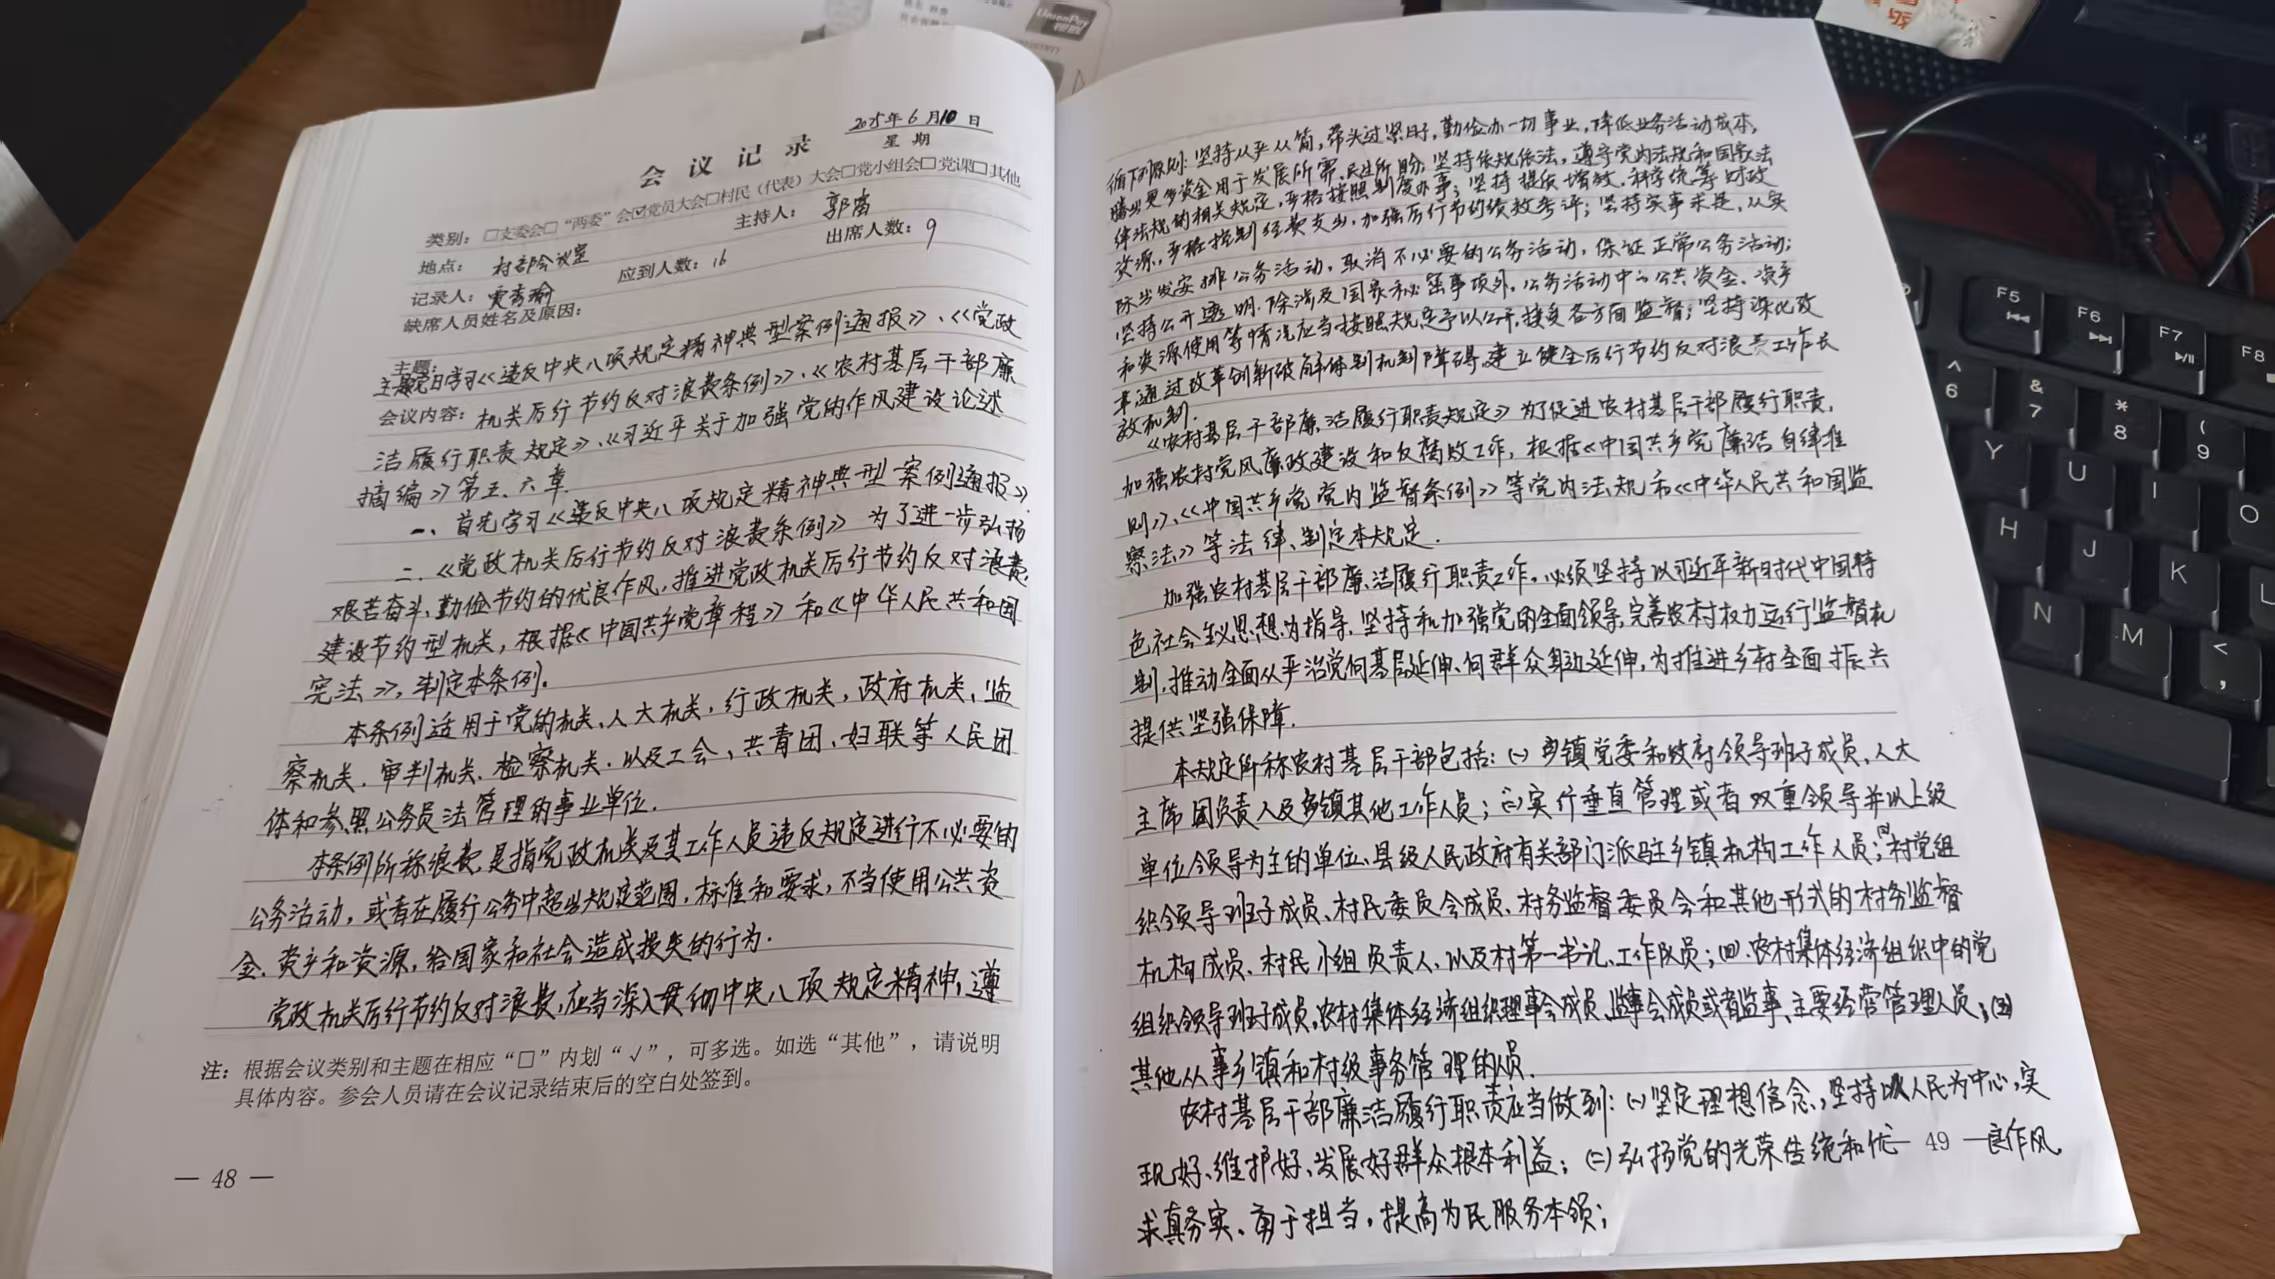 2025年6月10日
星期
会议记录
类别：□支委会□“两委”会☑党员大会□村民（代表）大会□党小组会□党课□其他
地点：村部会议室 主持人：郭
记录人： 应到人数：16 出席人数：9
缺席人员姓名及原因：
主题：
主题党日学习《违反中央八项规定精神典型案例通报》、《党政
会议内容：机关厉行节约反对浪费条例》、《农村基层干部廉
洁履行职责规定》、《习近平关于加强党的作风建设论述
摘编》第五、六章.
一、首先学习《违反中央八项规定精神典型案例通报》.
二、《党政机关厉行节约反对浪费条例》 为了进一步弘扬
艰苦奋斗、勤俭节约的优良作风，推进党政机关厉行节约反对浪费，
建设节约型机关，根据《中国共产党章程》和《中华人民共和国
宪法》，制定本条例。
本条例适用于党的机关、人大机关，行政机关，政府机关、监
察机关、审判机关、检察机关，以及工会、共青团、妇联等人民团
体和参照公务员法管理的事业单位.
本条例所称浪费，是指党政机关及其工作人员违反规定进行不必要的
公务活动，或者在履行公务中超出规定范围，标准和要求，不当使用公共资
金、资产和资源，给国家和社会造成损失的行为.
党政机关厉行节约反对浪费，应当深入贯彻中央八项规定精神，遵
注：根据会议类别和主题在相应“□”内划“√”，可多选。如选“其他”，请说明
具体内容。参会人员请在会议记录结束后的空白处签到。
— 48 —
循下列原则：坚持从严从简，带头过紧日子，勤俭办一切事业，降低业务活动成本，
腾出更多资金用于发展所需、民生所盼；坚持依规依法，遵守党内法规和国家法
律法规的相关规定，严格按照制度办事；坚持提质增效，科学统筹财政
资源，严格控制经费支出，加强厉行节约绩效考评；坚持实事求是，从实
际出发安排公务活动，取消不必要的公务活动，保证正常公务活动；
坚持公开透明，除涉及国家秘密事项外，公务活动中的公共资金、资产
和资源使用等情况应当按照规定予以公开，接受各方面监督；坚持深化改
革，通过改革创新破解体制机制障碍，建立健全厉行节约反对浪费工作长
效机制.
《农村基层干部廉洁履行职责规定》为了促进农村基层干部履行职责，
加强农村党风廉政建设和反腐败工作，根据《中国共产党廉洁自律准
则》、《中国共产党党内监督条例》等党内法规和《中华人民共和国监
察法》等法律、制定本规定.
加强农村基层干部廉洁履行职责工作，必须坚持以习近平新时代中国特
色社会主义思想为指导，坚持和加强党的全面领导，完善农村权力运行监督机
制，推动全面从严治党向基层延伸、向群众身边延伸，为推进乡村全面振兴
提供坚强保障.
本规定所称农村基层干部包括：(一)乡镇党委和政府领导班子成员、人大
主席团负责人及乡镇其他工作人员；(二)实行垂直管理或者双重领导并以上级
单位领导为主的单位、县级人民政府有关部门派驻乡镇机构工作人员；(三)村党组
织领导班子成员、村民委员会成员、村务监督委员会和其他形式的村务监督
机构成员、村民小组负责人，以及村第一书记、工作队员；(四)农村集体经济组织中的党
组织领导班子成员，农村集体经济组织理事会成员、监事会成员或者监事、主要经营管理人员；(五)
其他从事乡镇和村级事务管理的人员.
农村基层干部廉洁履行职责应当做到：(一)坚定理想信念，坚持以人民为中心，实
现好、维护好、发展好群众根本利益；(二)弘扬党的光荣传统和优良作风
— 49 —
求真务实、勇于担当，提高为民服务本领；
UnionPay
银联
F5
F6
F7
F8
^
6
&
7
*
8
(
9
Y
U
I
O
H
J
K
L
N
M
<
,